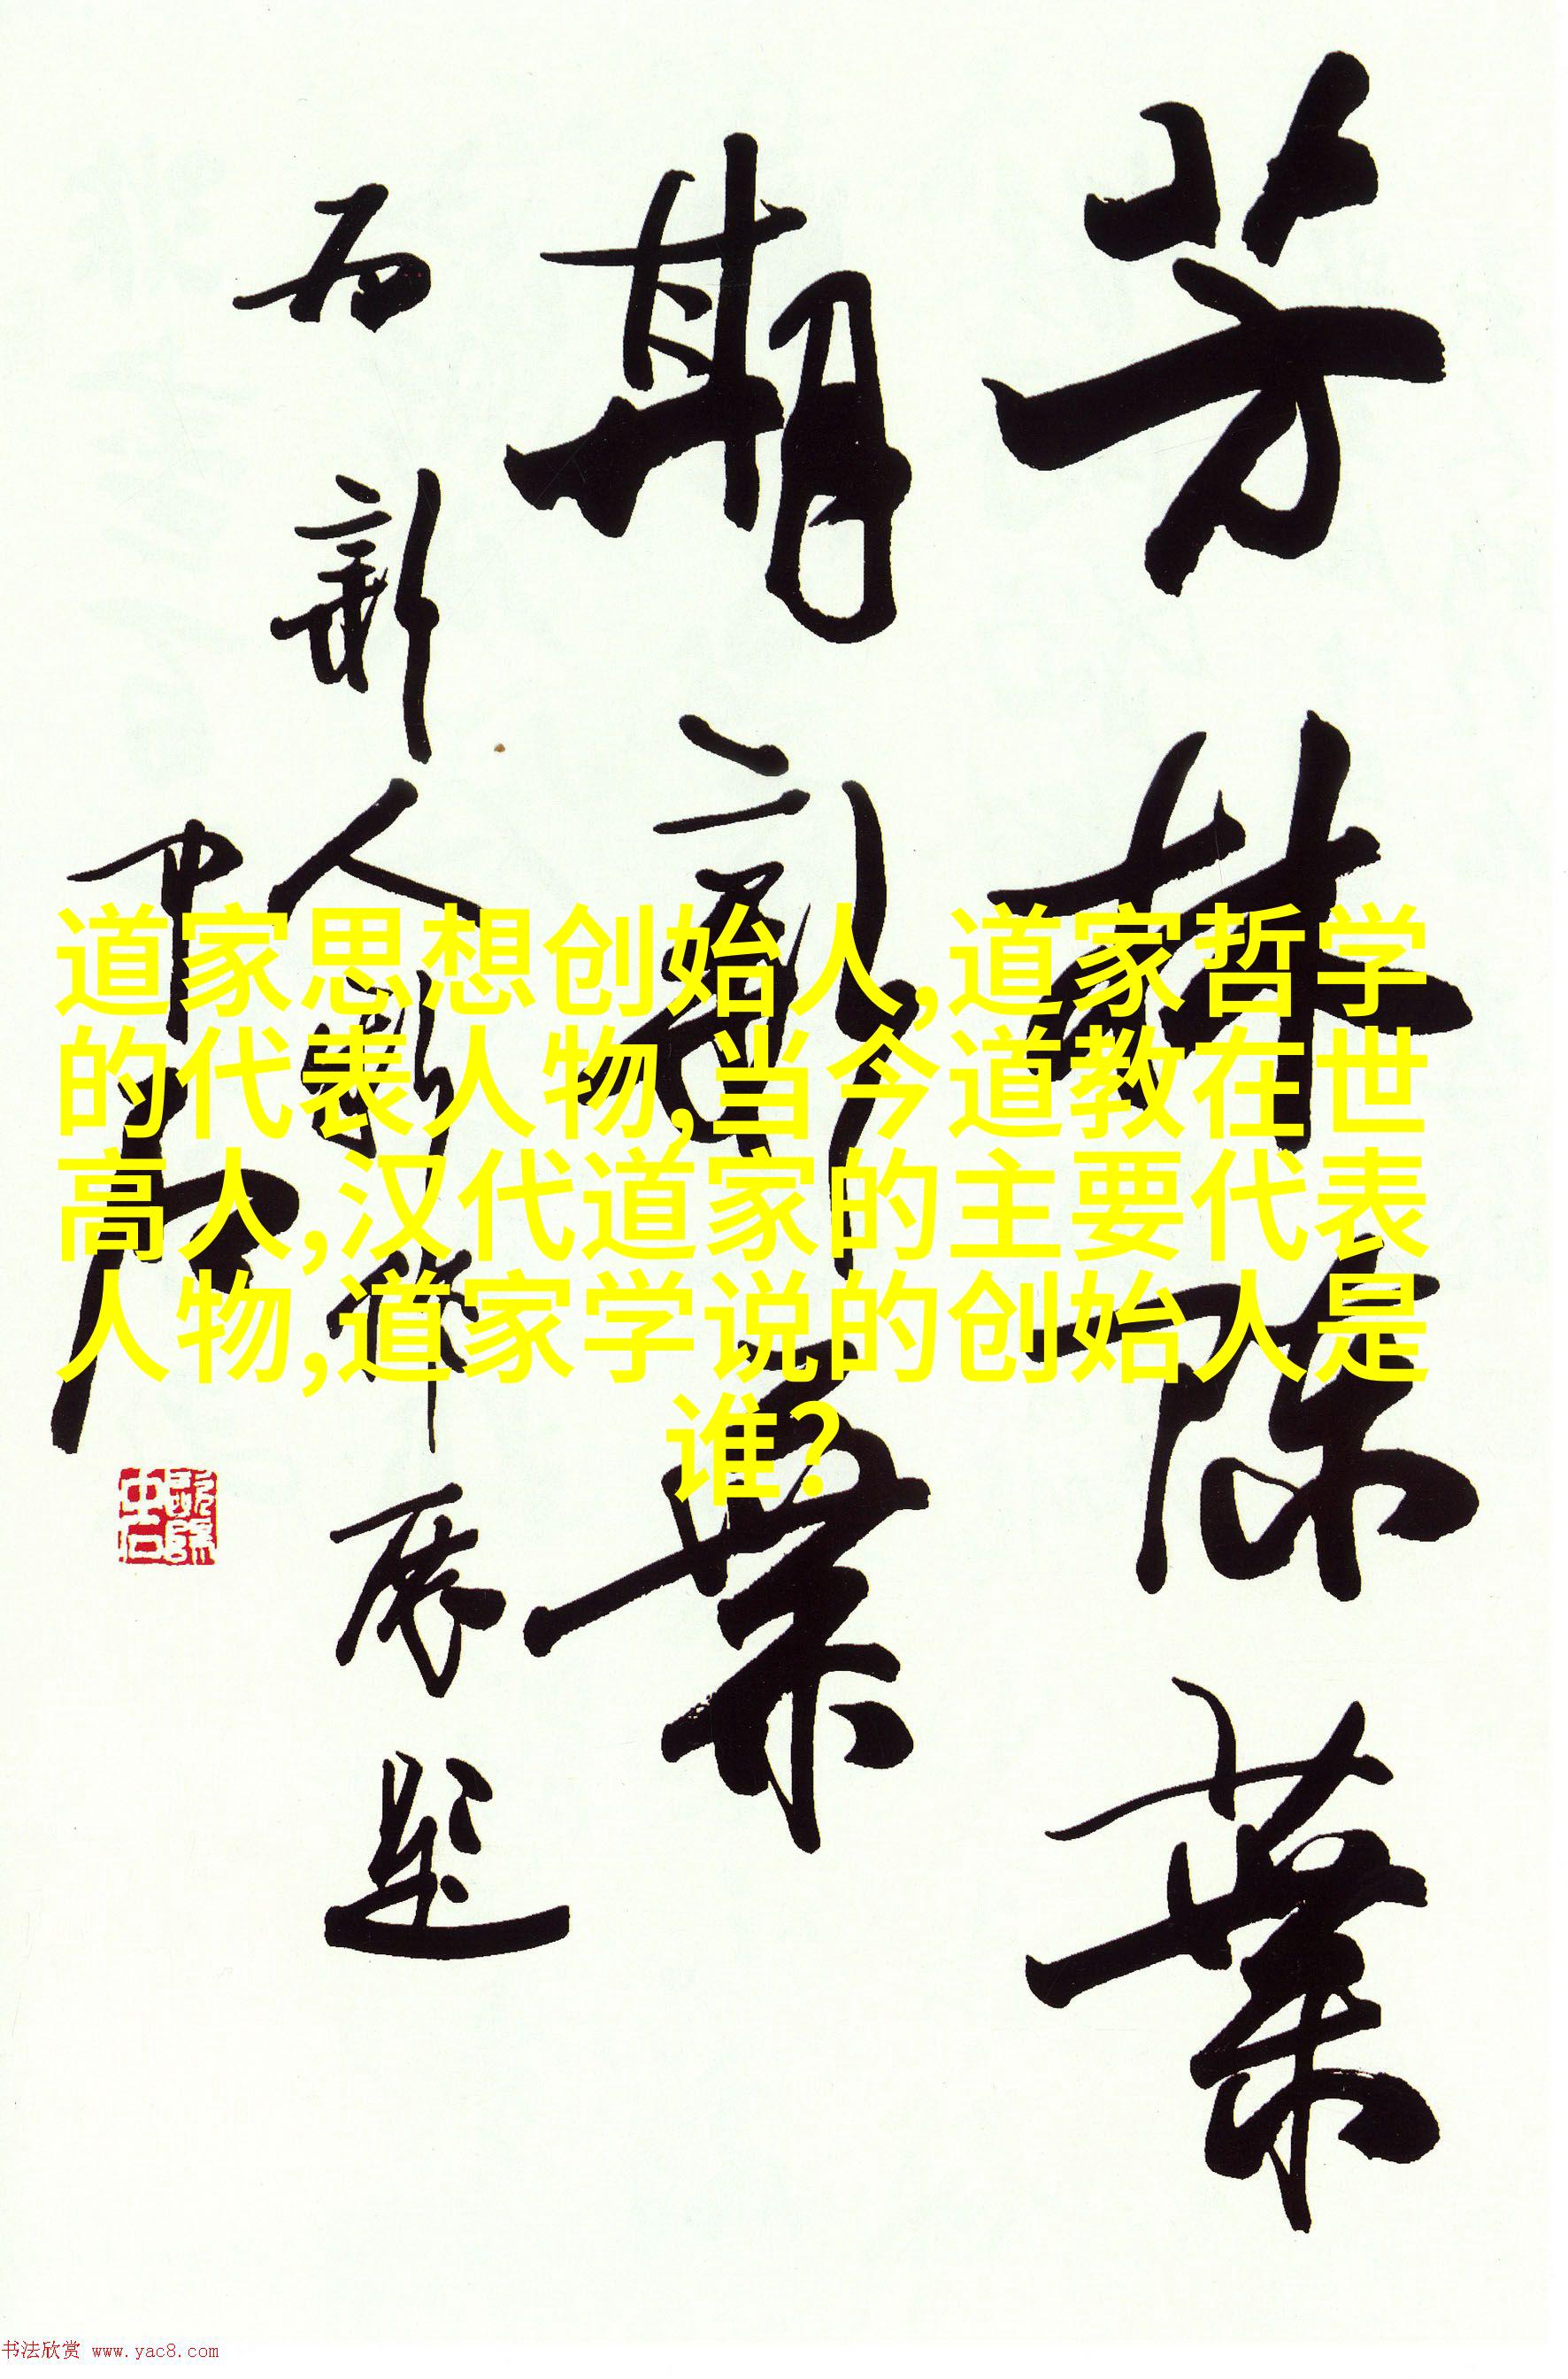 芳林陈葉
期新葉
为新人新作展题
中石
道家思想创始人,道家哲学
的代表人物,当今道教在世
高人,汉代道家的主要代表
人物,道家学说的创始人是
谁?
书法欣赏 www.yac8.com